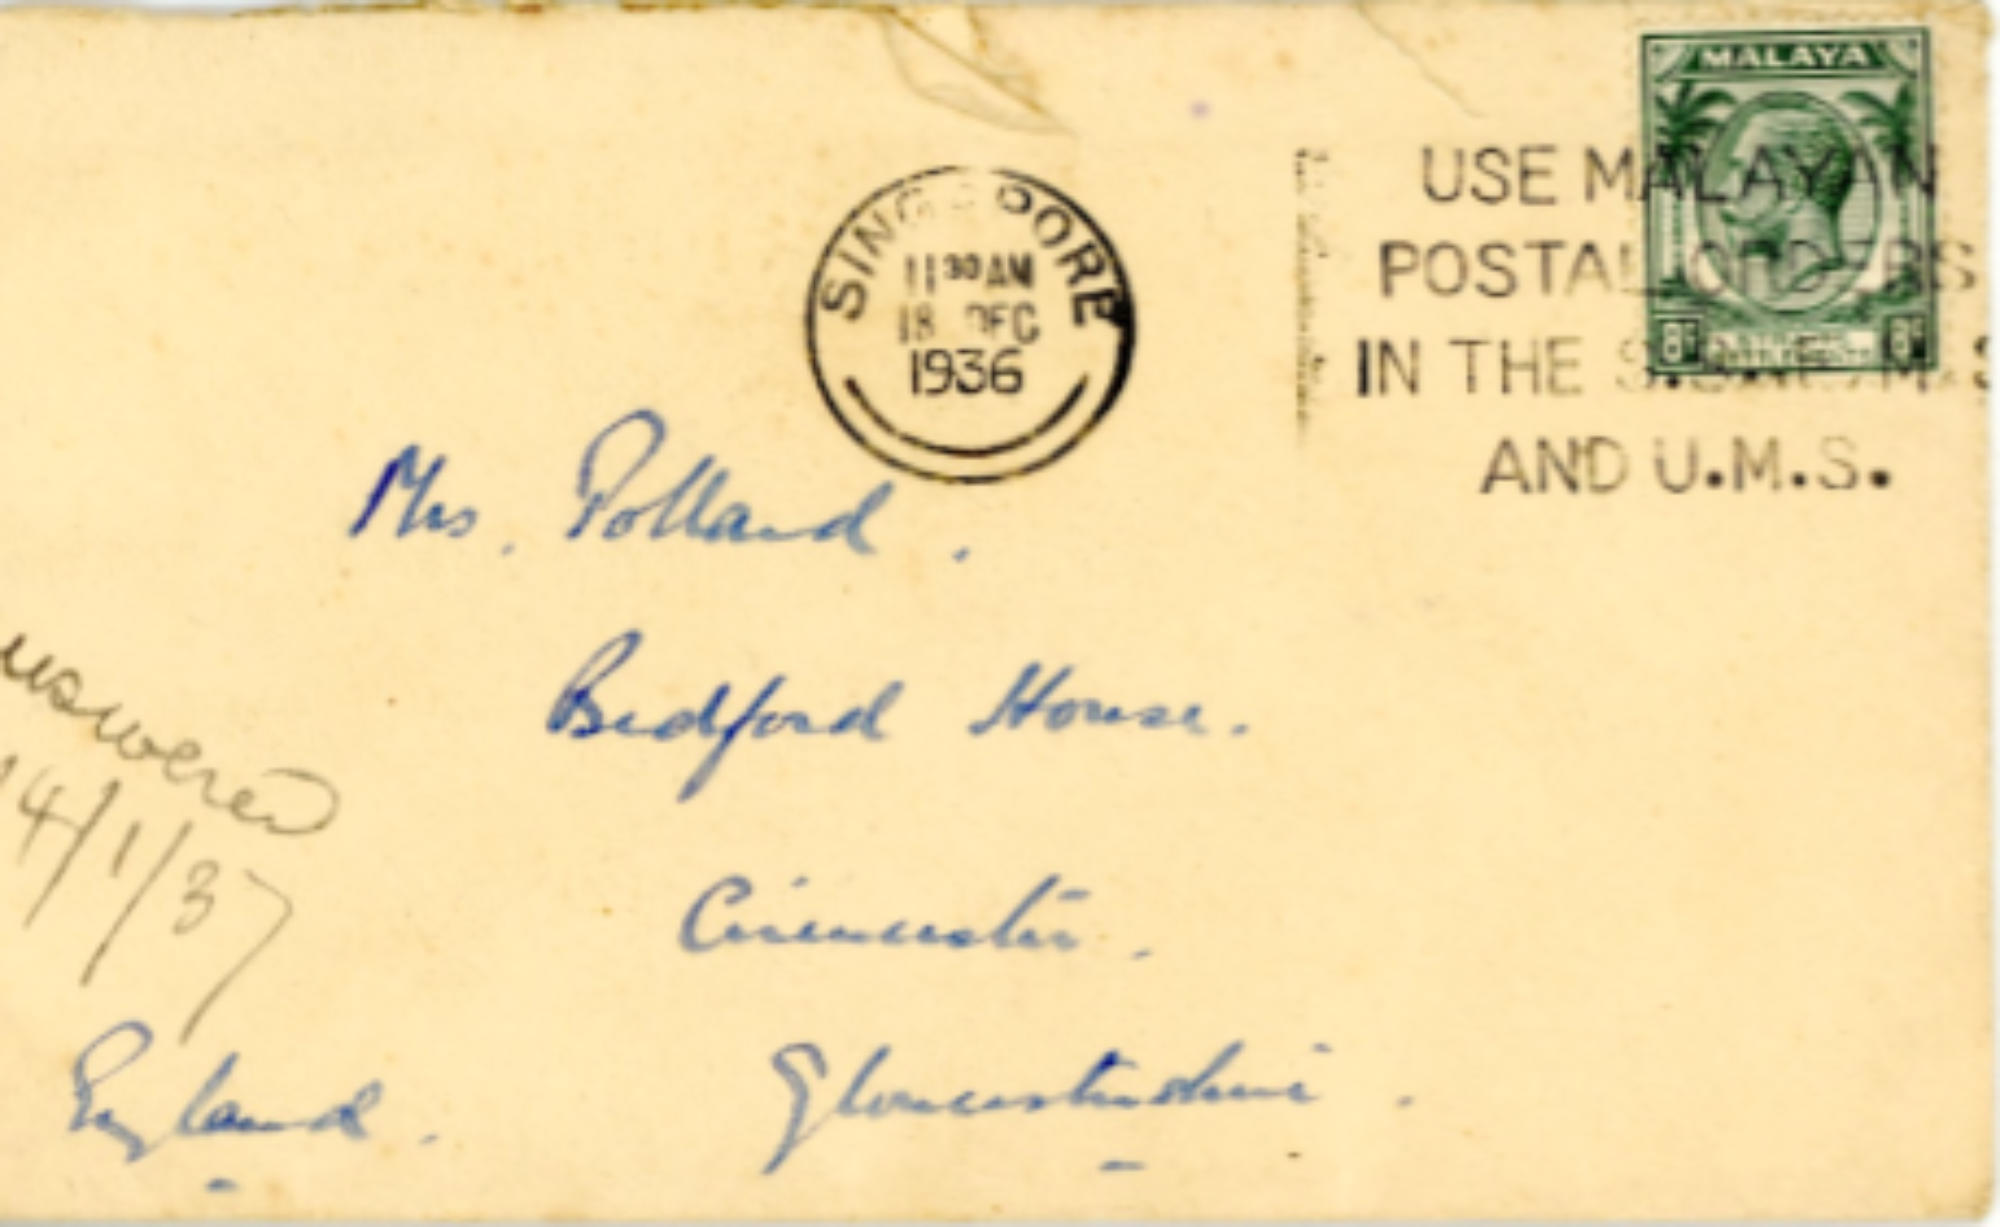 MALAYA
USE MALAYAN
POSTAL ORDERS
IN THE S.S. F.M.S
AND U.M.S.
8c 8c
SINGAPORE
11 30 AM
18 DEC
1936
Mrs. Polland.
Bedford House.
Cirencester.
Gloucestershire.
England.
nswered
14/1/37